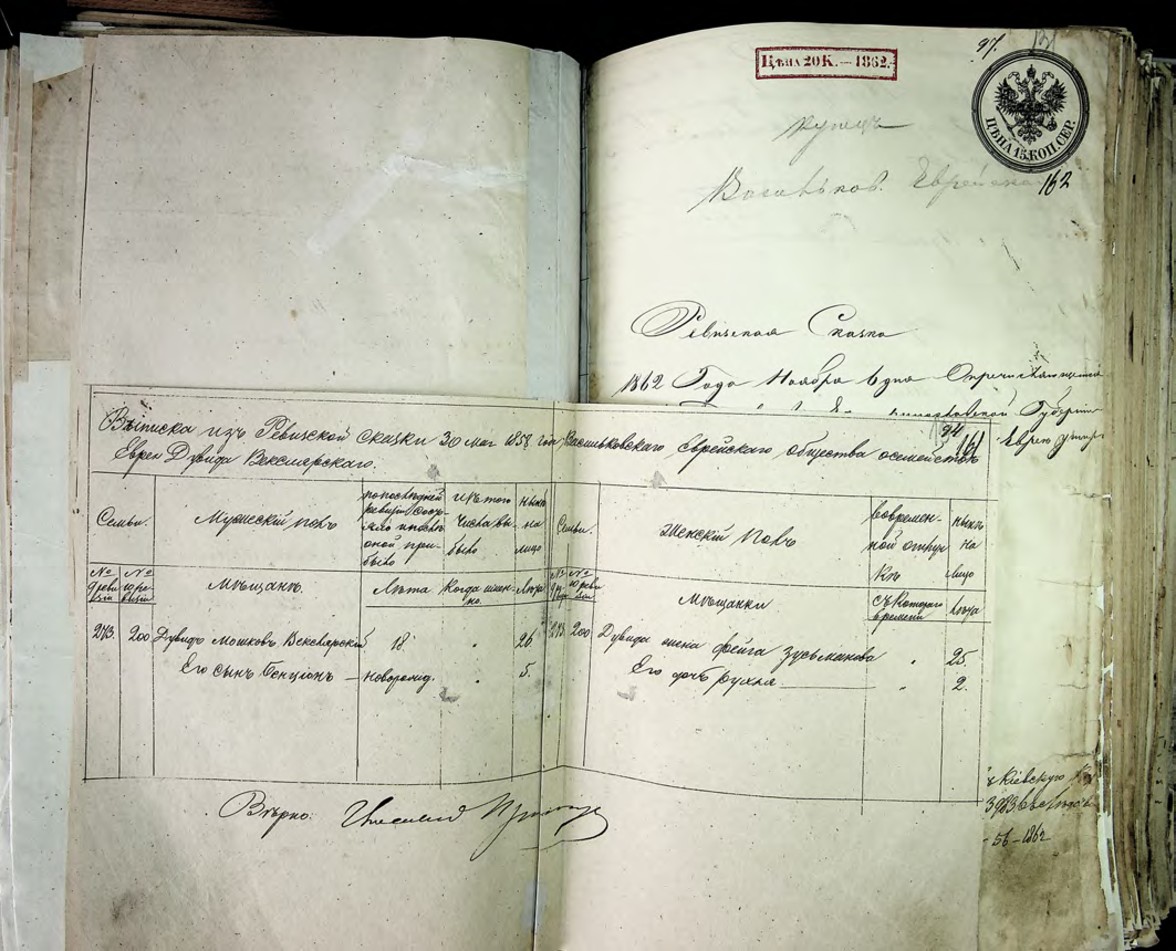 97.
Цѣна 20 К. — 1862.
ЦѢНА 15 КОП. СЕР.
Купецъ
Васильков. Еврейска
162
Ревизская Сказка
1862 Года Ноября 6 дня
Губерніи
Выписка изъ Ревизской сказки 30 мая 1858 года Васильковскаго Еврейскаго общества о семействѣ
94
161
Еврея Дувида Векслярскаго.
Семьи.
Мужескій полъ
по последней ревизіи состояло и послѣ оной прибыло
изъ того числа выбыло
нынѣ на лицо
Семьи.
Женскій полъ
во временной отлучкѣ
нынѣ на лицо
№ 9 ревизіи
№ 10 ревизіи
Мѣщанъ.
Лѣта
Когда именно.
Лѣта
№ 9 ревизіи
№ 10 ревизіи
Мѣщанки
Съ котораго времени
Лѣта
273. 200 Дувидъ Мошковъ Векслярскій 18. " 26. 273. 200 Дувида жена Фейга Зусьманова " 25.
Его сынъ Бенціонъ — новорожд. " 5. Его дочь Рухля — " 2.
Вѣрно:
Кіевскую
3983
56 — 1862